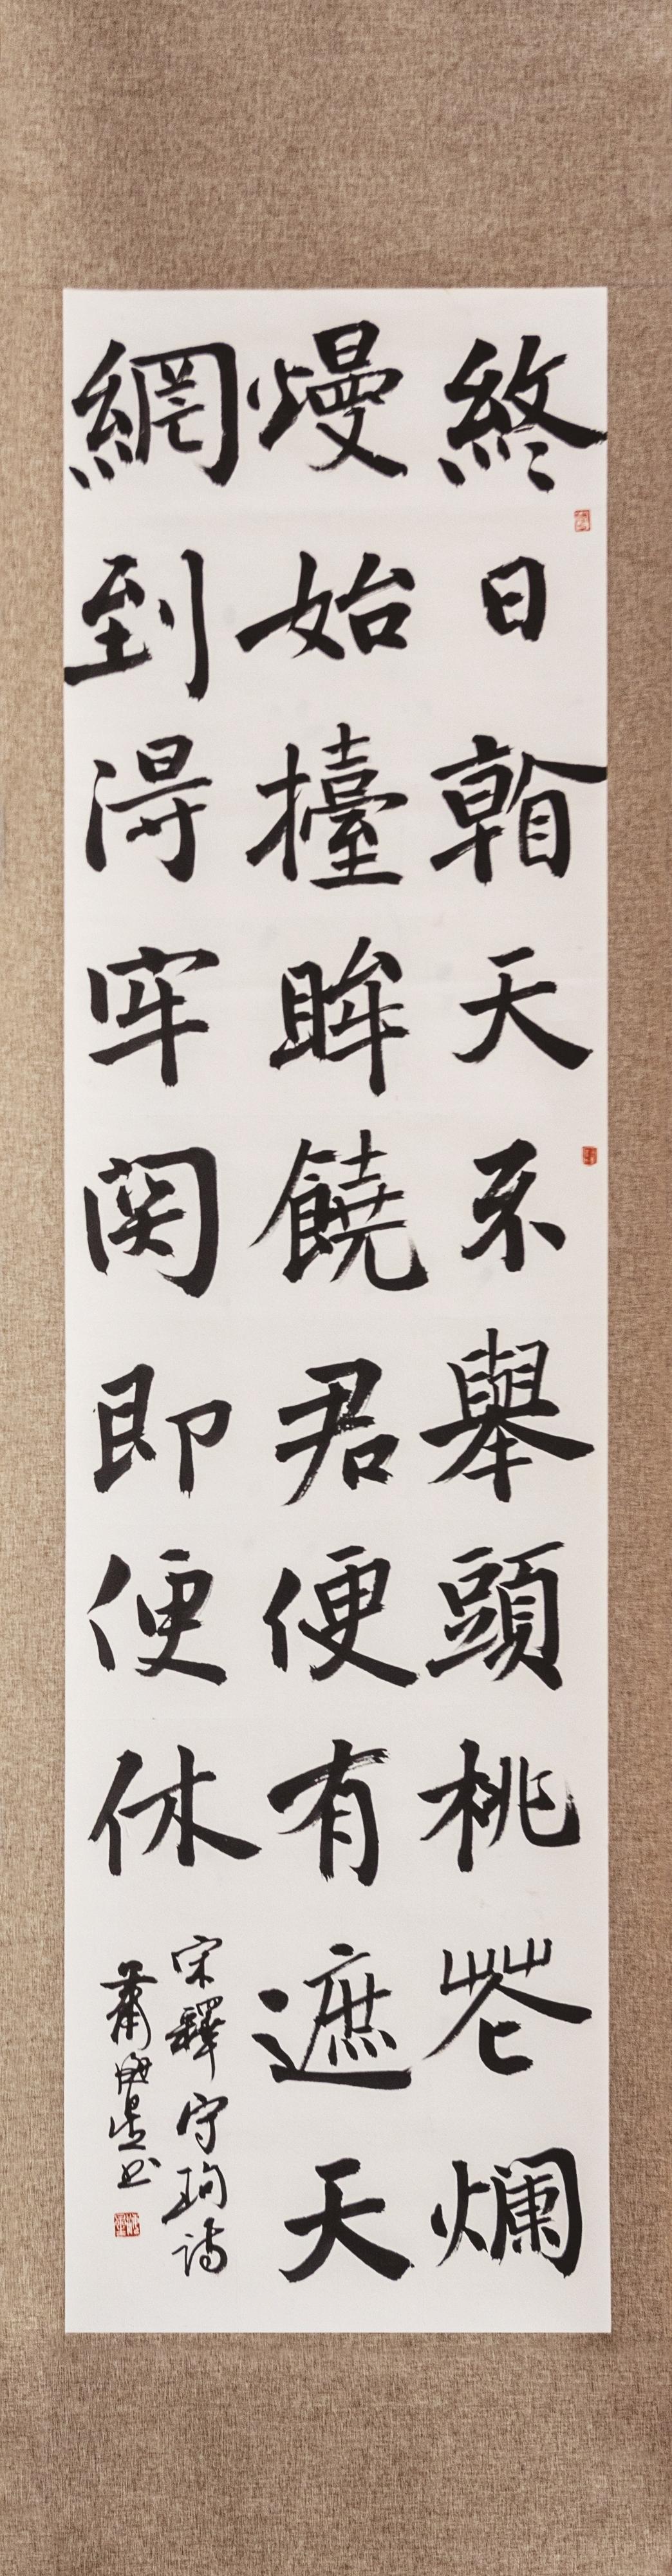 終日看天不舉頭桃花爛
熳始擡眸饒君便有遮天
網到得牢関即便休
宋釋守珣詩
蕭